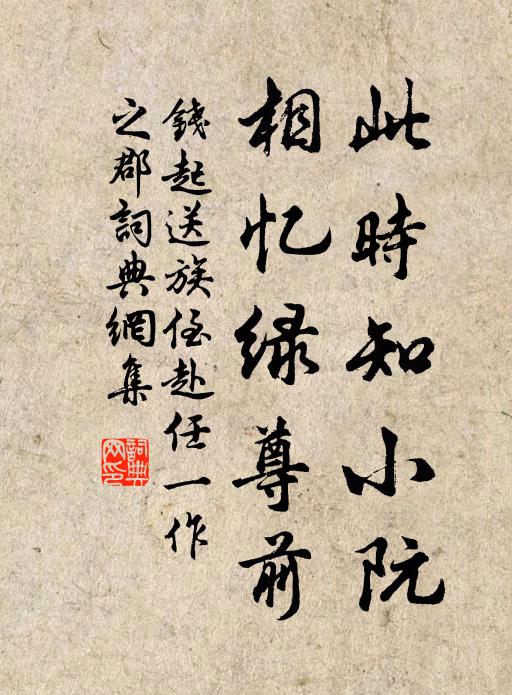 此時知小阮
相忆緑尊前
錢起送族侄赴任一作
之郡詞典網集
詞典网印